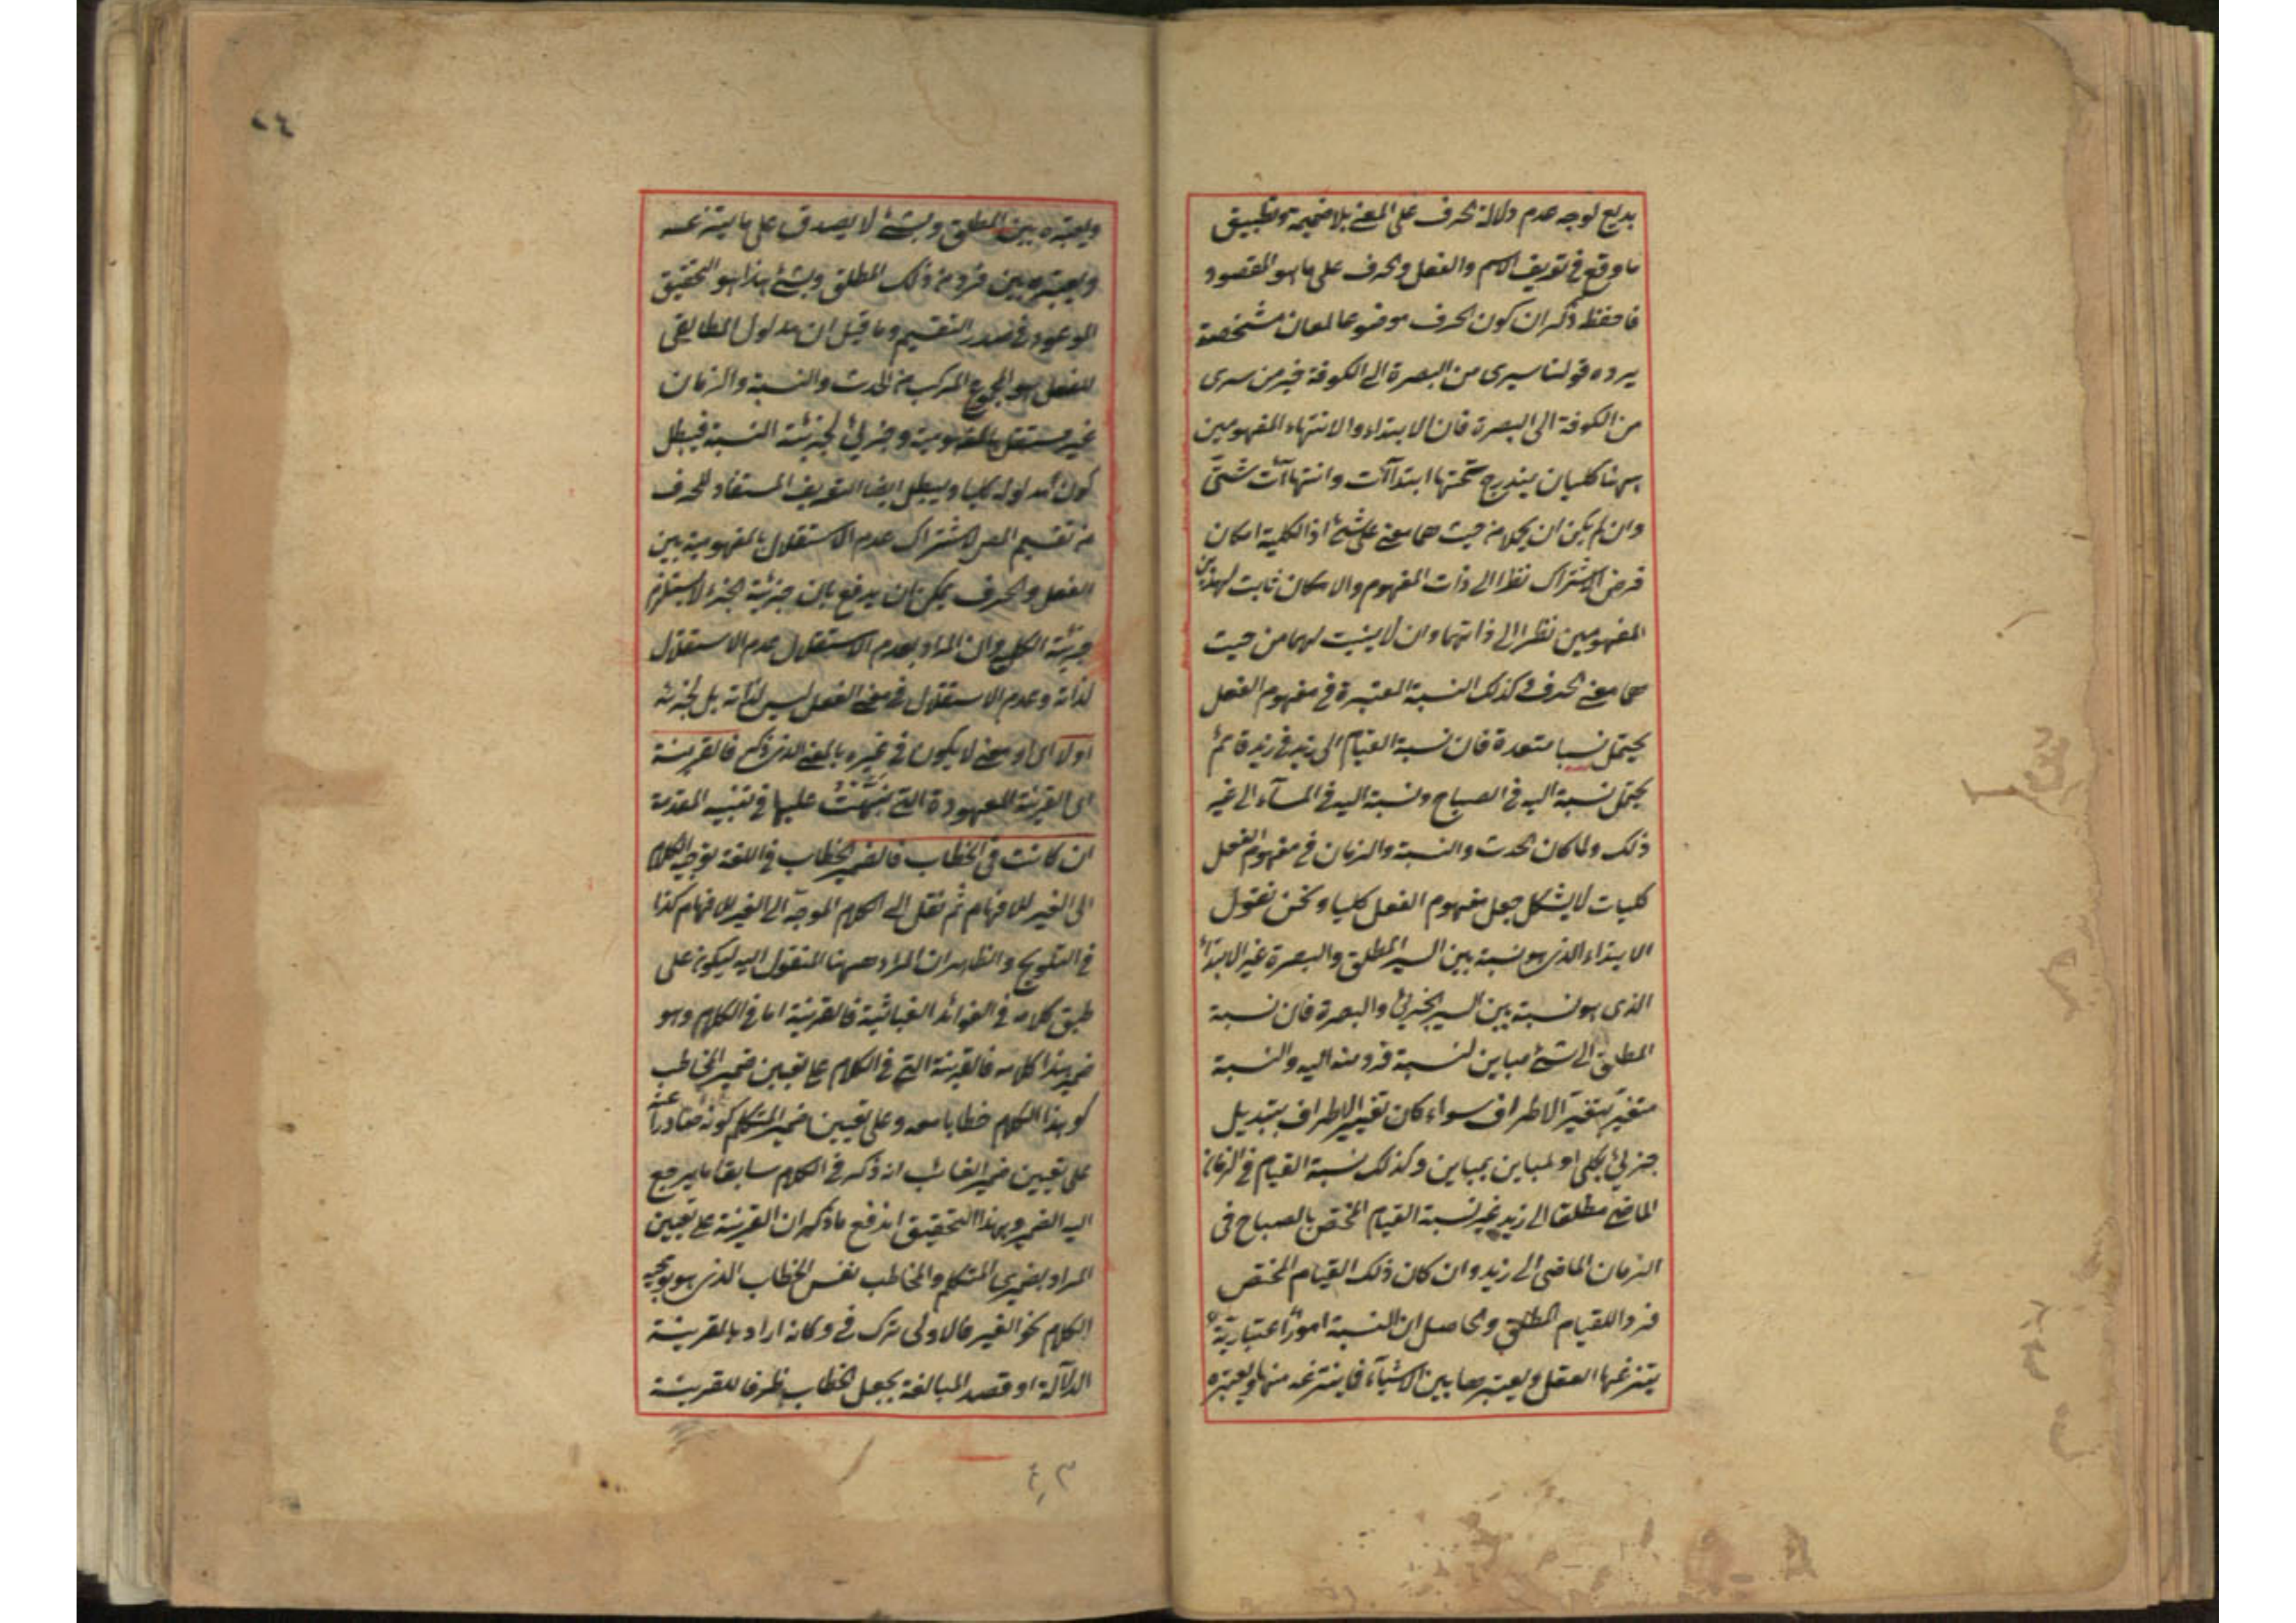 بديع لوجه عدم دلالة الحرف على المعنى بلا ضميمة وتطبيق
ما وقع في تعريف الاسم والفعل والحرف على ما هو المقصود
فاحفظ ذكر ان كون الحرف موضوعا لمعان مشخصة
يرده قولنا سيرى من البصرة الى الكوفة خير من سيرى
من الكوفة الى البصرة فان الابتداء والانتهاء المفهومين
ههنا كليان يندرج تحتها ابتداآت وانتهاآت شتى
وان لم يكن ان يحملا من حيث هما معنى على شئ اذ الكلية امكان
فرض الاشتراك نظرا الى ذات المفهوم والامكان ثابت لهذين
المفهومين نظرا الى ذاتهما وان لا يثبت لهما من حيث
هما معنى الحرف وكذلك النسبة المعتبرة في مفهوم الفعل
يحتمل نسبا متعددة فان نسبة القيام الى زيد في زيد قائم
يحتمل نسبة اليه في الصباح ونسبة اليه في المسآء الى غير
ذلك ولما كان الحدث والنسبة والزمان في مفهوم الفعل
كليات لا يشكل جعل مفهوم الفعل كليا ونحن نقول
الابتداء الذى هو نسبة بين السير المطلق والبصرة غير الابتداء
الذى هو نسبة بين السير الجزئي والبصرة فان نسبة
المطلق الى شئ مباين لنسبة فرد منه اليه والنسبة
متغير بتغير الاطراف سواء كان تغير الاطراف بتبديل
جزئي بكلي او لمباين بمباين وكذلك نسبة القيام في الزمان
الماضى مطلقا الى زيد غير نسبة القيام المختص بالصباح في
الزمان الماضى الى زيد وان كان ذلك القيام المختص
فردا للقيام المطلق والحاصل ان النسبة امور اعتبارية
ينتزعها العقل ويعتبرها بين الاشيآء فما ينتزعه منها ويعتبره
٢٤
ويعتبره بين المطلق وشئ لا يصدق على ما ينتزعه
ويعتبره بين فرد من ذلك المطلق وشئ هذا هو التحقيق
الموعود في صدر التقسيم وما قيل ان مدلول المطابقى
للفعل هو المجموع المركب من الحدث والنسبة والزمان
غير مستقل بالمفهومية وجزئي لجزئية النسبة فيبطل
كون مدلوله كليا ويبطل ايضا التعريف المستفاد للحرف
من تقسيم المص لاشتراك عدم الاستقلال بالمفهومية بين
الفعل والحرف يمكن ان يدفع بان جزئية الجزء لا يستلزم
جزئية الكل وان المراد بعدم الاستقلال عدم الاستقلال
لذاته وعدم الاستقلال في معنى الفعل ليس لذاته بل لجزئه
اولا اى او معنى لا يكون في غيره بالمعنى الذى ذكر فالقرينة
اى القرينة المعهودة التى نبهت عليها في تنبيه المقدمة
ان كانت في الخطاب فالضمير الخطاب في اللغة توجيه الكلام
الى الغير للافهام ثم نقل الى الكلام الموجه الى الغير للافهام كذا
في التلويح والظاهر ان المراد ههنا المنقول اليه ليكون على
طبق كلامه في الفوائد الغياثية فالقرينة اما في الكلام وهو
ضمير هذا كلامه فالقرينة التى في الكلام على تعيين ضمير المخاطب
كو هذا الكلام خطابا معه وعلى تعيين ضمير المتكلم كونه صادرا عنه
على تعيين ضمير الغائب ان ذكر في الكلام سابقا ما يرجع
اليه الضمير وبهذا التحقيق اندفع ما ذكر ان القرينة على تعيين
المراد بضميرى المتكلم والمخاطب نفس الخطاب الذى هو توجيه
الكلام نحو الغير فالاولى ترك في وكانه اراد بالقرينة
الدلالة او قصد المبالغة بجعل الخطاب ظرفا للقرينة